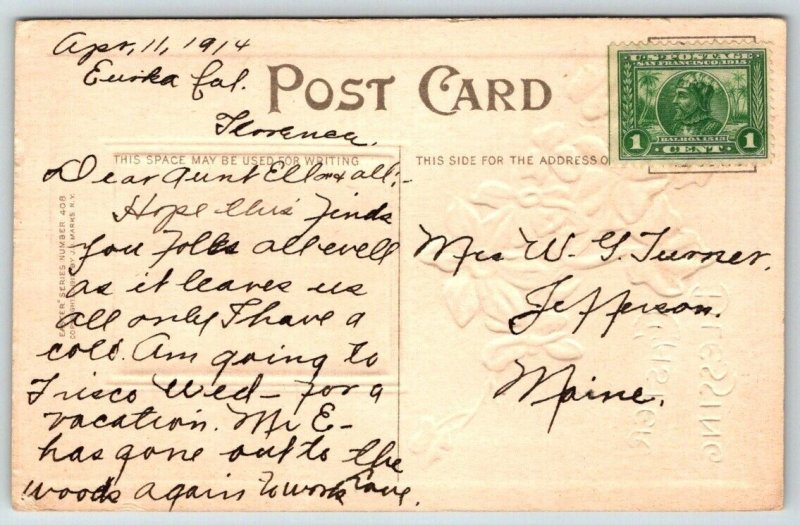 Apr. 11, 1914
Eureka Cal.
POST CARD
Florence.
THIS SPACE MAY BE USED FOR WRITING
THIS SIDE FOR THE ADDRESS O
Dear Aunt Ell & all:-
Hope this finds
you folks all well
as it leaves us
all only I have a
cold. Am going to
Frisco Wed- for a
vacation. Mr E-
has gone out to the
woods again to work
Love.
Mrs W. G. Turner.
Jefferson.
Maine.
U.S. POSTAGE
SAN FRANCISCO 1915
BALBOA 1513
1 CENT 1
EASTER SERIES NUMBER 408
BLESSING
EASTER